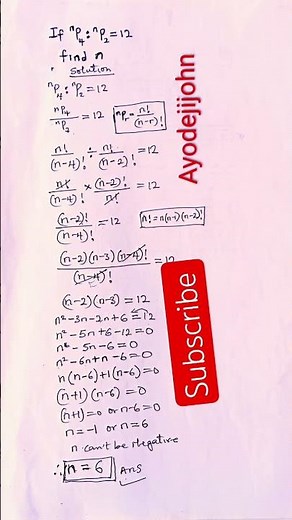 If ⁿP₄ : ⁿP₂ = 12
find n
Solution
ⁿP₄ : ⁿP₂ = 12
ⁿP₄/ⁿP₂ = 12   ⁿPr = n!/(n-r)!
n!/(n-4)! ÷ n!/(n-2)! = 12
n!/(n-4)! × (n-2)!/n! = 12
(n-2)!/(n-4)! = 12   n! = n(n-1)(n-2)!
(n-2)(n-3)(n-4)!/(n-4)! = 12
(n-2)(n-3) = 12
n²-3n-2n+6 = 12
n²-5n+6-12=0
n²-5n-6=0
n²-6n+n-6=0
n(n-6)+1(n-6)=0
(n+1)(n-6)=0
(n+1)=0 or n-6=0
n=-1 or n=6
n can't be negative
∴ n = 6 Ans
Ayodejijohn
Subscribe